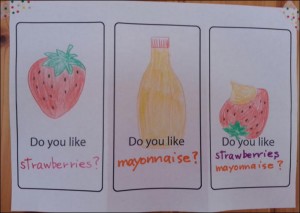 Do you like
strawberries?
Do you like
mayonnaise?
Do you like
strawberries
mayonnaise?